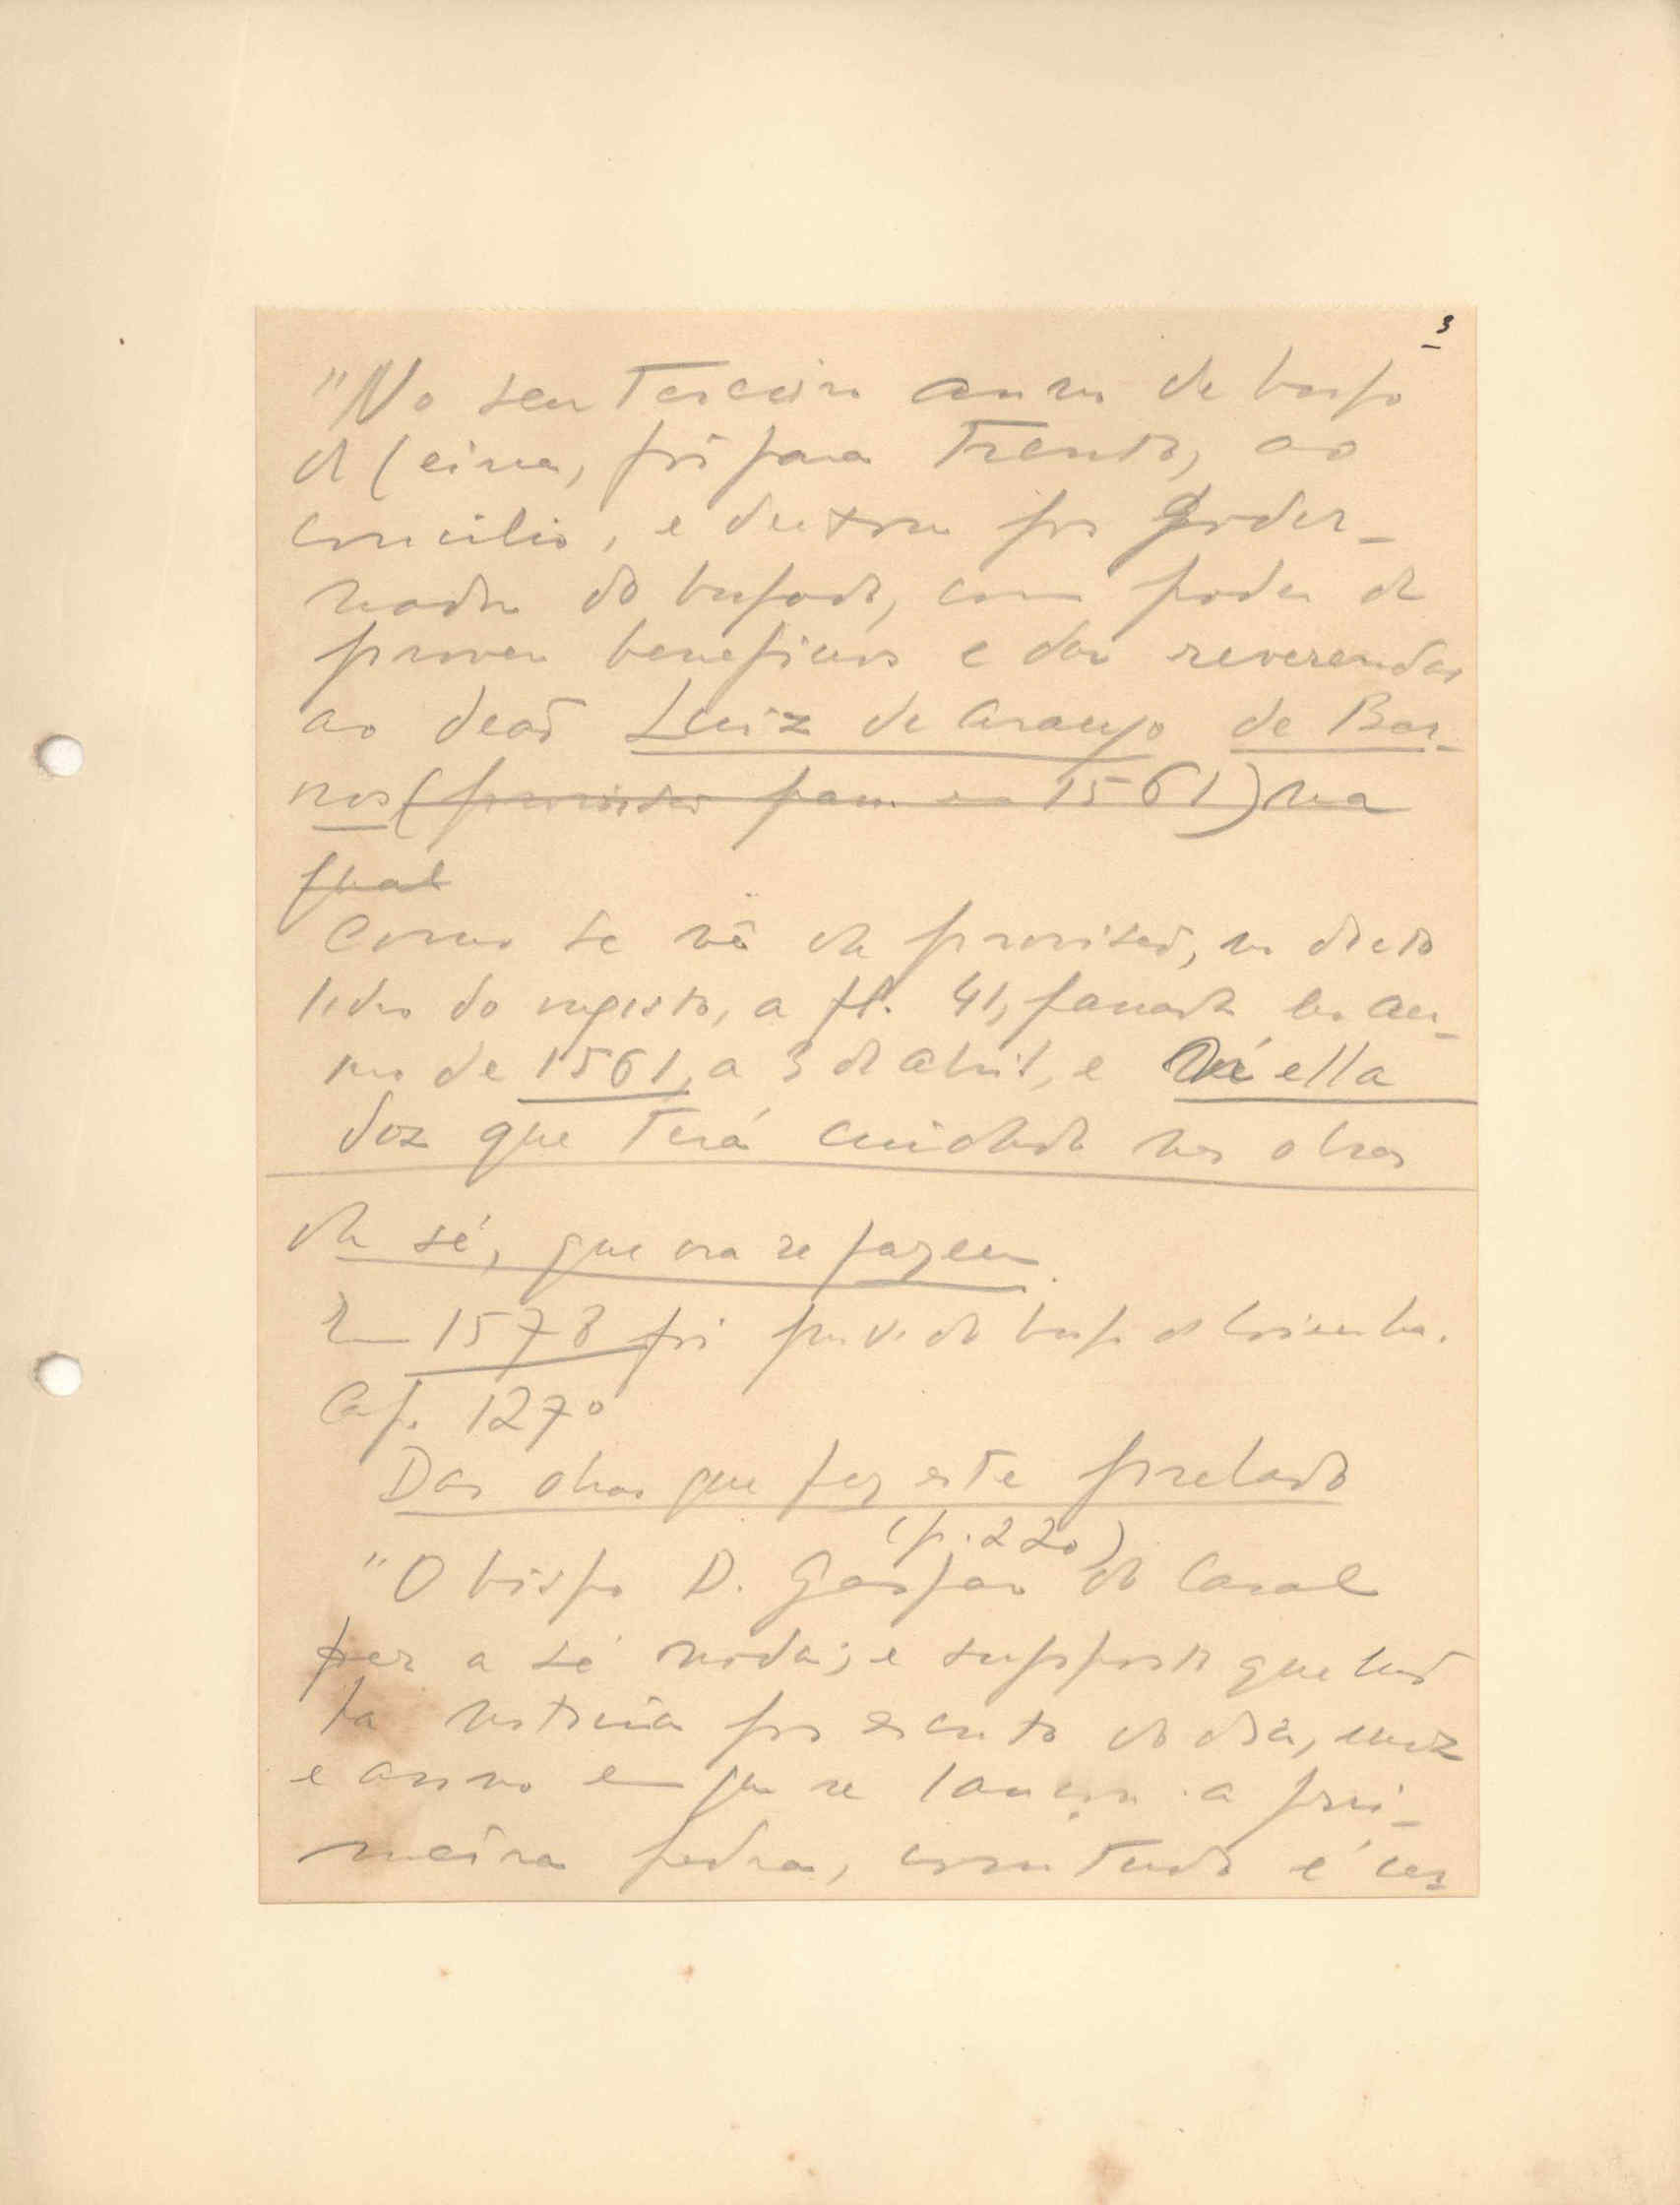 3
"No seu terceiro anno de bispo
de Leiria, foi para Trento, ao
concilio, e deixou por gover-
nador do bispado, com poder de
prover beneficios e dar reverendas
ao deaõ Luiz de Araujo de Bar-
ros (provisão passada em 1561) na
qual
Como se vê da provisaõ, no dicto
livro do registo, a fl. 41, passada no an-
no de 1561, a 3 de abril, e n'ella
diz que terá cuidado nas obras
da sé, que ora se fazem.
Em 1578 foi bispo de Coimbra.
Cap. 127º
Das obras que fez este prelado
(p. 220)
"O bispo D. Gaspar do Casal
fez a sé nova; e supposto que naõ
ha noticia por escrito do dia, mez
e anno em que se lançou a pri-
meira pedra, comtudo é cer-